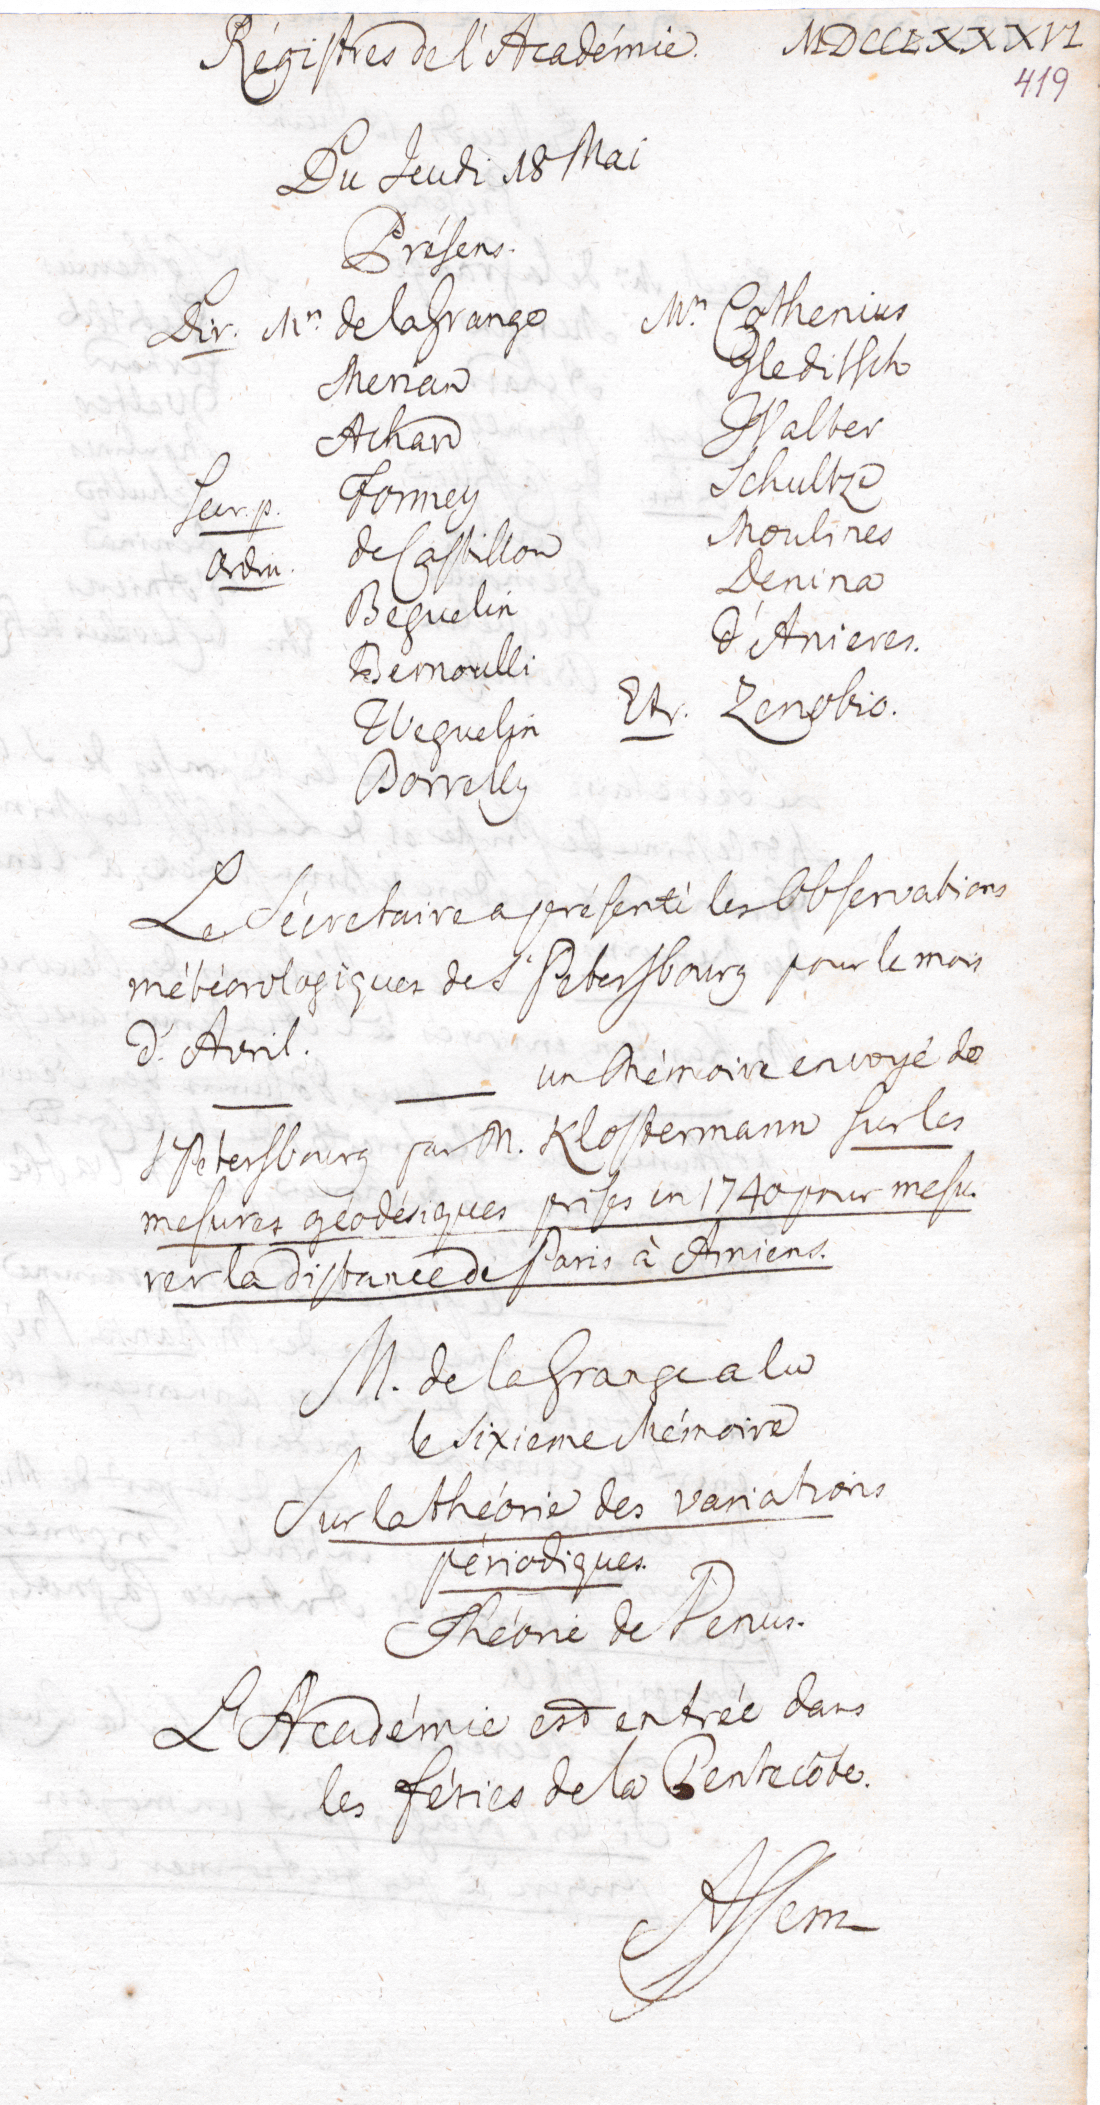 Régistres de l'Académie. MDCCLXXXVI
419
Du Jeudi 18 Mai
Présens.
Dir. Mrs. de la Grange
Merian
Achard
Secr. p. Formey
Ordin. de Castillon
Beguelin
Bernoulli
Weguelin
Borrelly
Mrs. Cothenius
Gleditsch
Walter
Schultze
Moulines
Denina
d'Anieres.
Etr. Zenobio.
Le Sécretaire a présenté les Observations
météorologiques de St Petersbourg pour le mois
d'Avril.
— — un Mémoire envoyé de
St Pétersbourg par M. Klostermann sur les
mesures géodésiques prises en 1740 pour mesu-
rer la distance de Paris à Amiens.
M. de la Grange a lu
le sixieme Mémoire
Sur la théorie des variations
périodiques.
Théorie de Venus.
L'Académie est entrée dans
les féries de la Pentecôte.